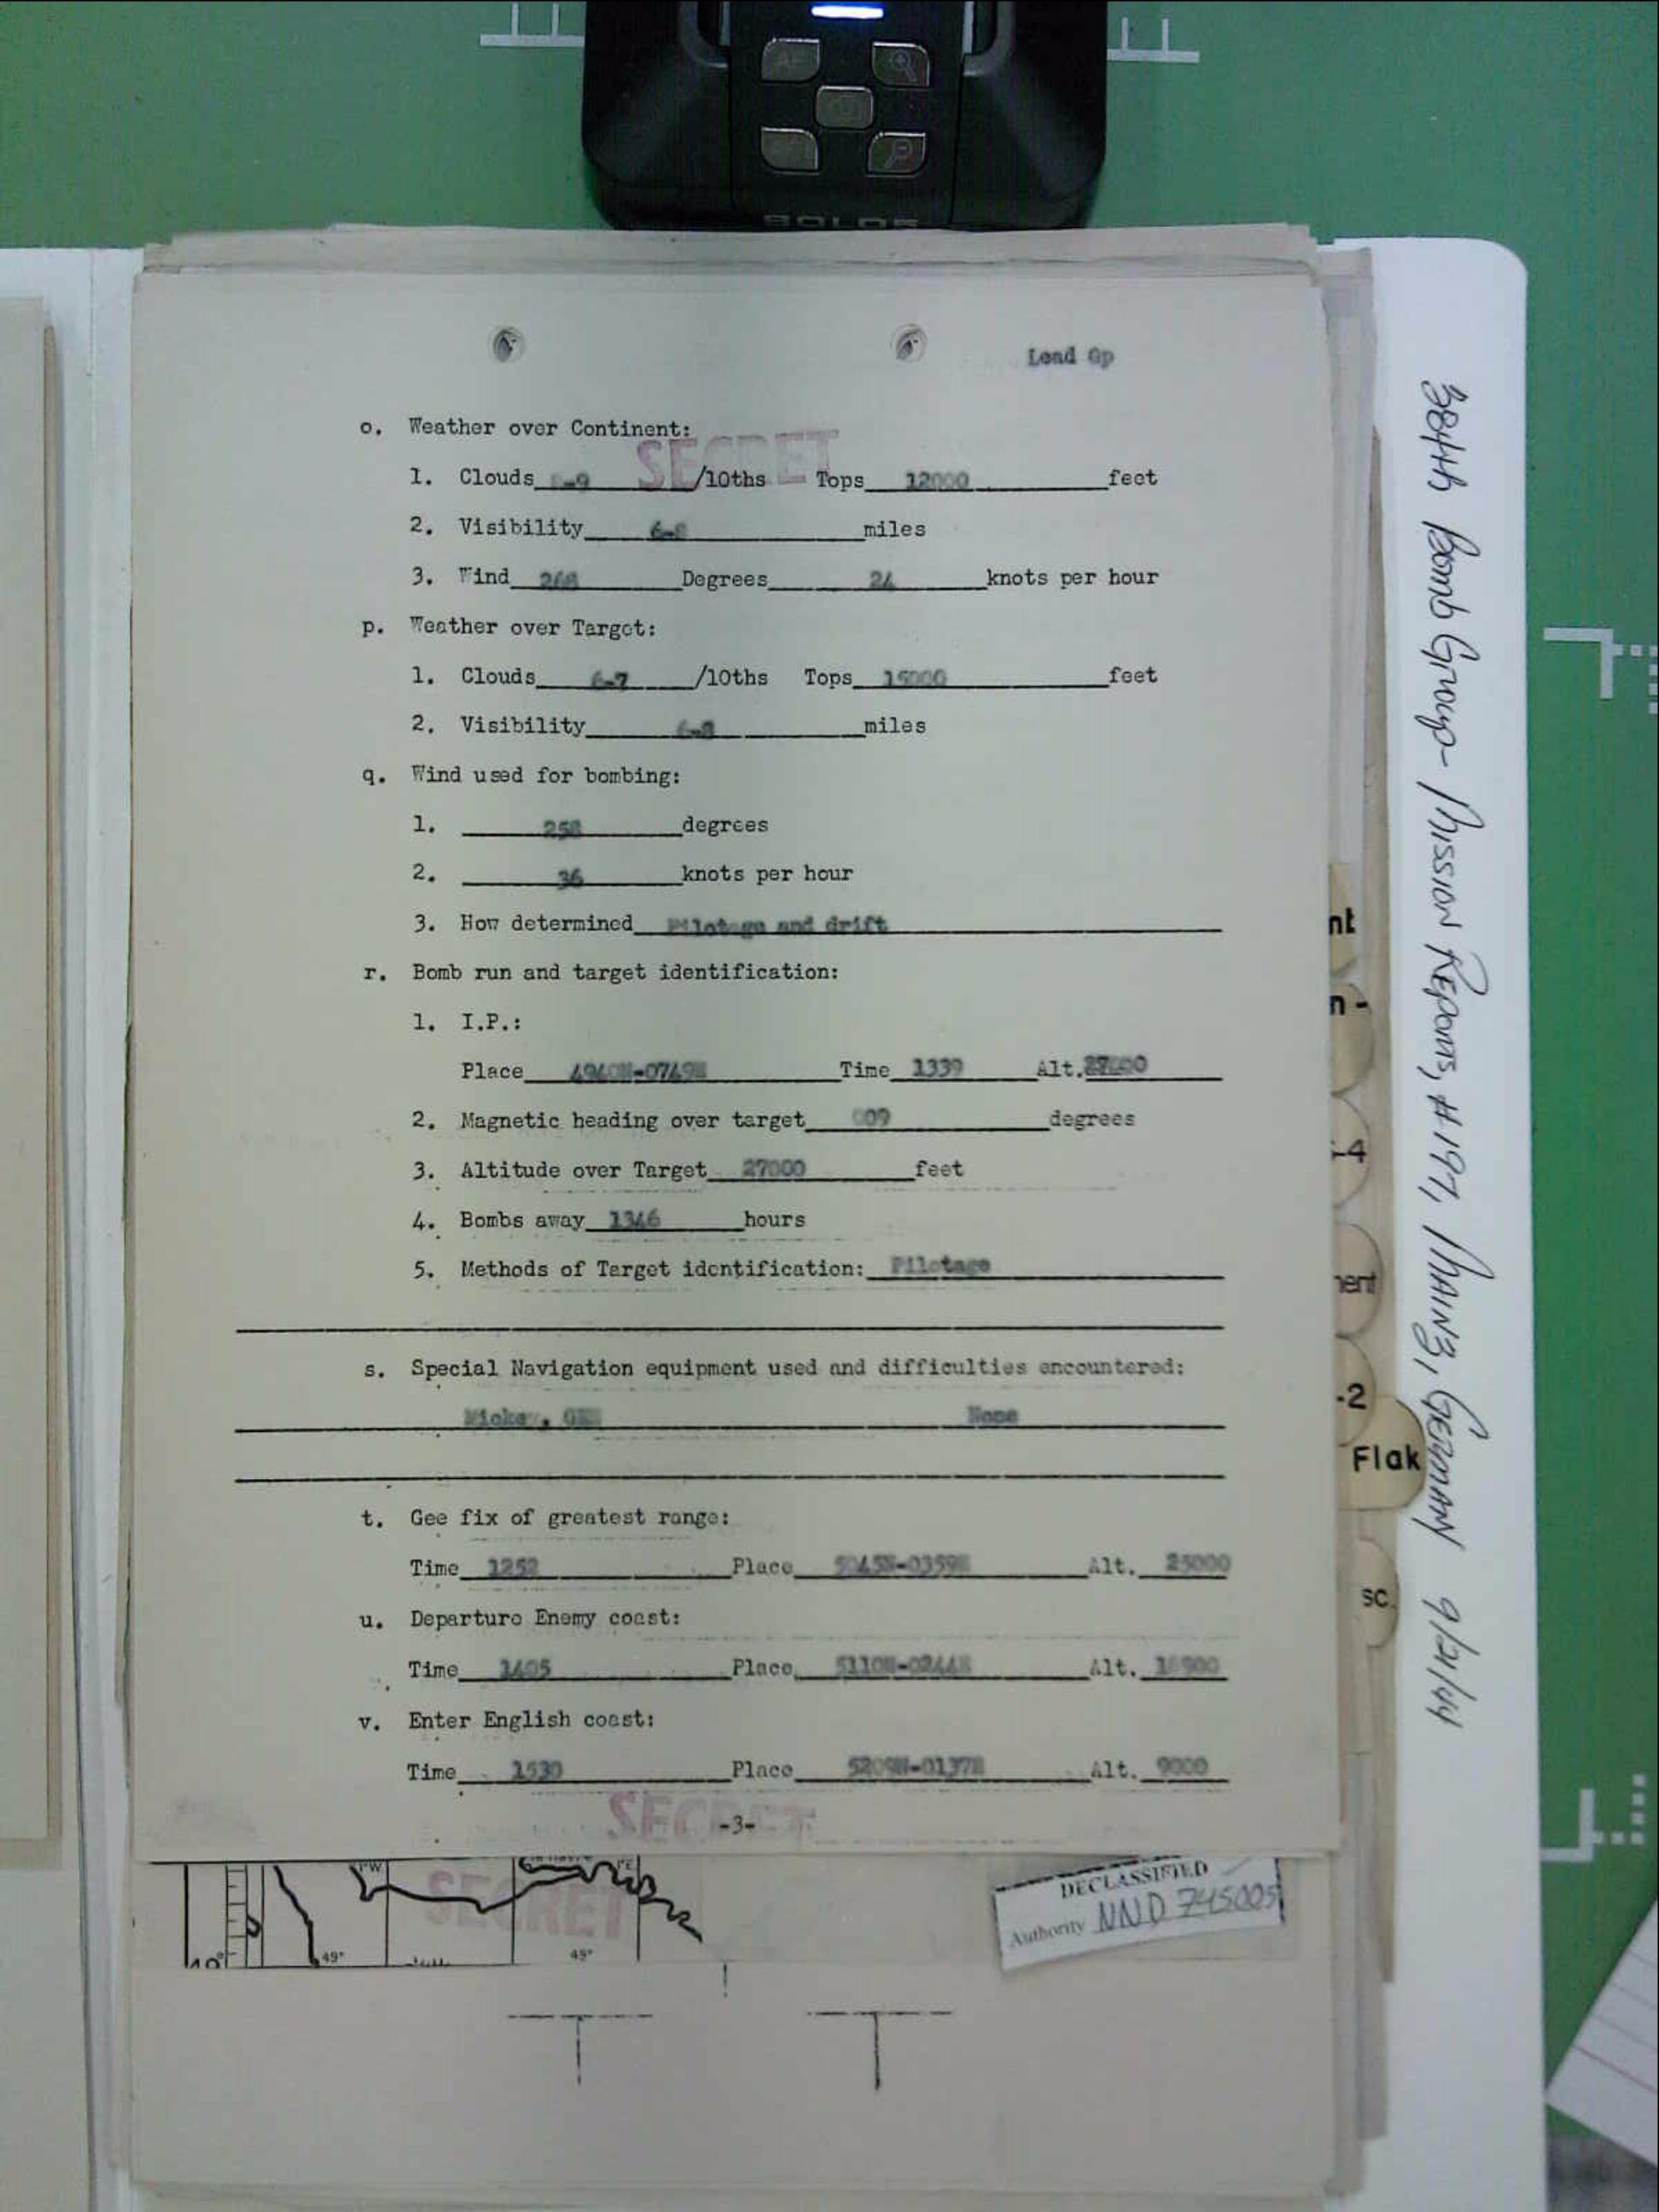 Lead Gp
o. Weather over Continent:
SECRET
1. Clouds /10ths Tops 12000 feet
2. Visibility 6-8 miles
3. Wind 268 Degrees 24 knots per hour
p. Weather over Target:
1. Clouds 6-7 /10ths Tops 15000 feet
2. Visibility 6-8 miles
q. Wind used for bombing:
1. 258 degrees
2. 36 knots per hour
3. How determined Pilotage and drift
r. Bomb run and target identification:
1. I.P.:
Place 4940N-0749E Time 1339 Alt.
2. Magnetic heading over target 009 degrees
3. Altitude over Target 27000 feet
4. Bombs away 1346 hours
5. Methods of Target identification: Pilotage
s. Special Navigation equipment used and difficulties encountered:
Mickey, GEE None
t. Gee fix of greatest range:
Time 1252 Place 5045N-0359E Alt. 25000
u. Departure Enemy coast:
Time Place 5110N-0244E Alt.
v. Enter English coast:
Time 1530 Place 5209N-0137E Alt. 9000
SECRET
-3-
SECRET
49°
49°
DECLASSIFIED
Authority NND 745005
384th Bomb Group - Mission Reports, #197, Mainz, Germany 9/21/44
nt
n -
-4
ent
-2
Flak
sc.